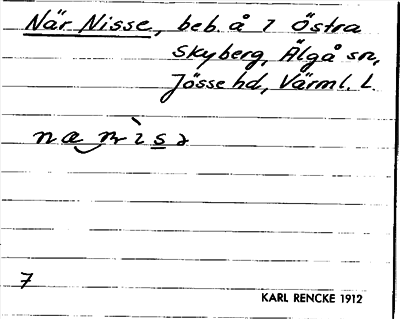 När Nisse, beb. å 1 Östra
Skyberg, Älgå sn,
Jösse hd, Värml. l.
7
KARL RENCKE 1912